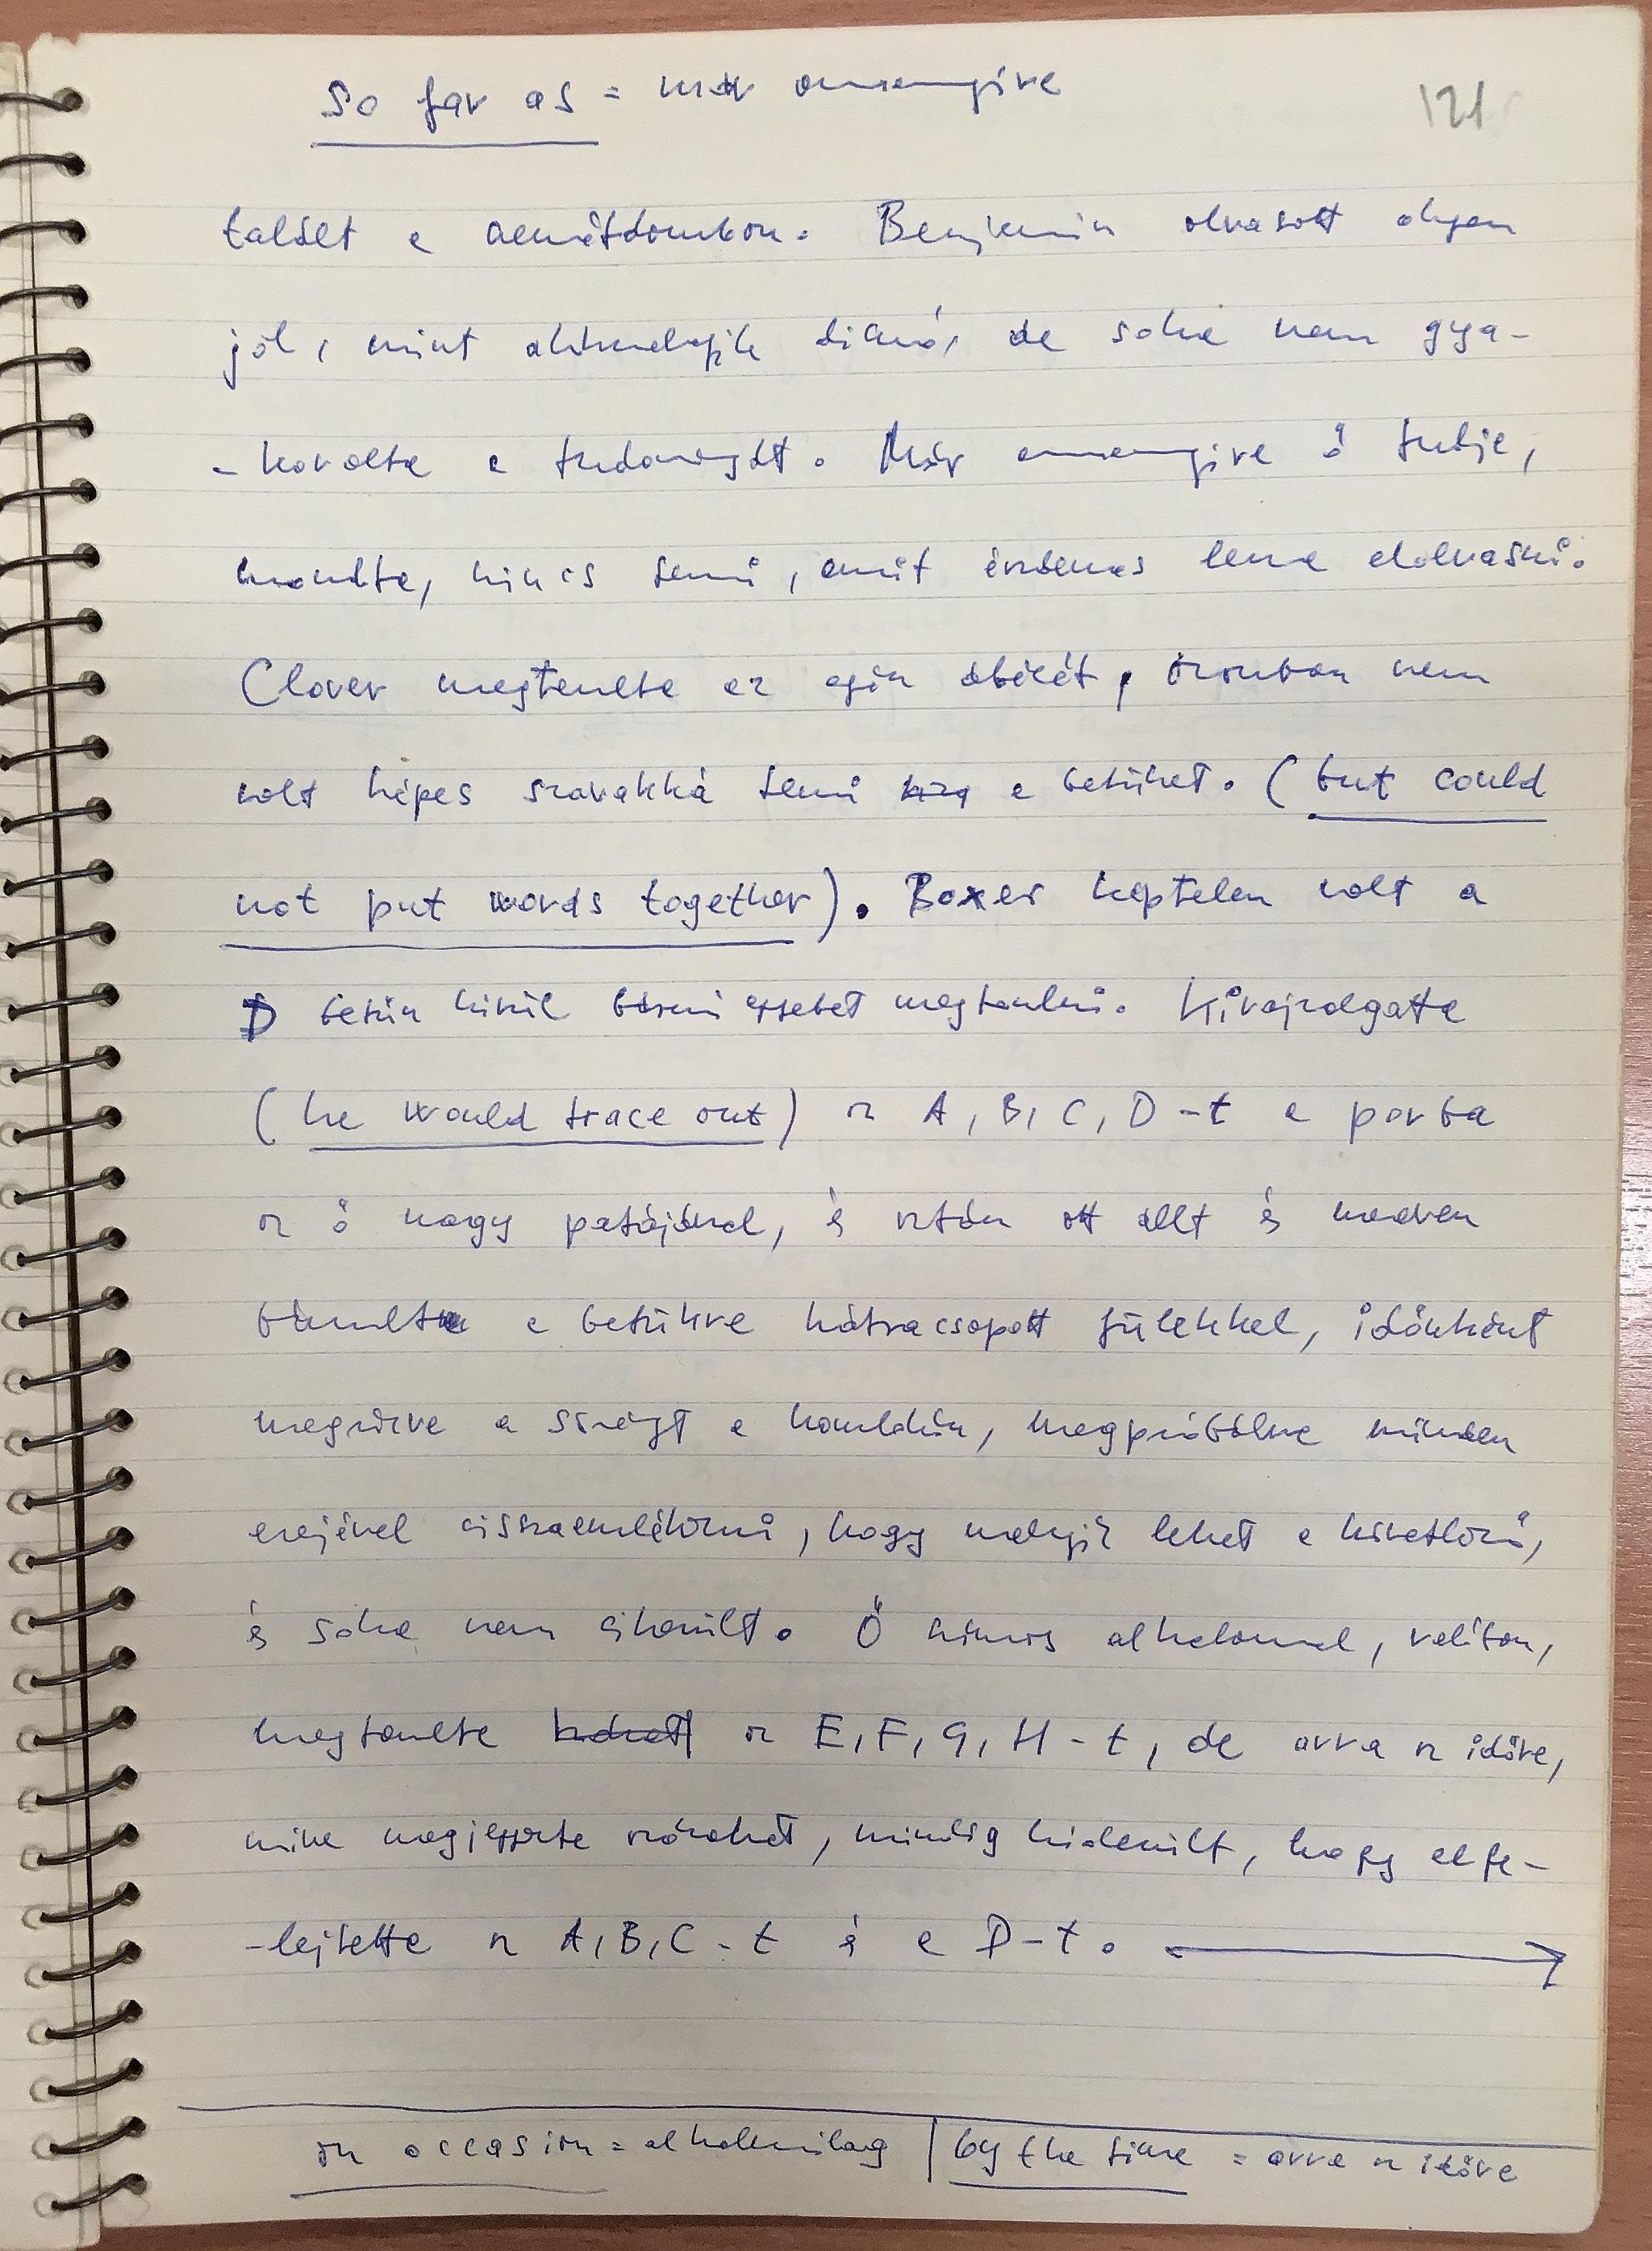 So far as = már amennyire
121
talált a szemétdombon. Benjamin olvasott olyan
jól, mint akármelyik disznó, de soha nem gya-
-korolta a tudományát. Már amennyire ő tudja,
mondta, nincs semmi, amit érdemes lenne elolvasni.
Clover megtanulta az egész ábécét, azonban nem
volt képes szavakká tenni a betűket. (but could
not put words together). Boxer képtelen volt a
D betűn kívül bármi egyebet megtanulni. Kirajzolgatta
(he would trace out) az A, B, C, D-t a porba
az ő nagy patájával, és aztán ott állt és mereven
bámult a betűkre hátracsapott fülekkel, időnként
megrázva a sörényt a homlokán, megpróbálva minden
erejével visszaemlékezni, hogy melyik lehet a következő,
és soha nem sikerült. Ő számos alkalommal, valóban,
megtanulta az E, F, G, H-t, de arra az időre,
mire megjegyezte azokat, mindig kiderült, hogy elfe-
-lejtette az A, B, C-t és a D-t. →
on occasion = alkalmilag | by the time = arra az időre